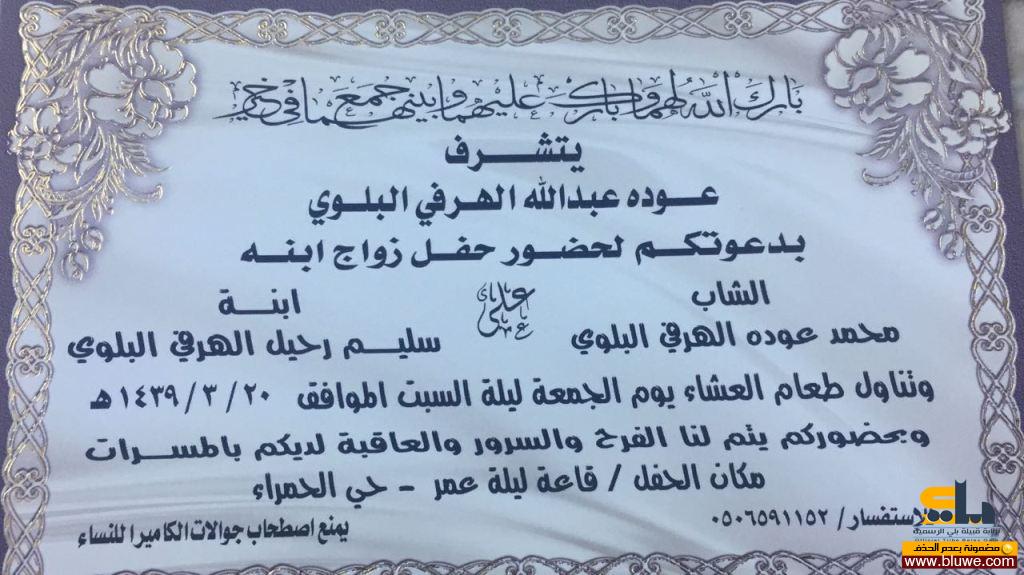 بارك الله لهما وبارك عليهما وجمع بينهما في خير
يتشرف
عوده عبدالله الهرفي البلوي
بدعوتكم لحضور حفل زواج ابنه
الشاب
محمد عوده الهرفي البلوي
على
ابنة
سليم رحيل الهرفي البلوي
وتناول طعام العشاء يوم الجمعة ليلة السبت الموافق ٢٠ / ٣ / ١٤٣٩ هـ
وبحضوركم يتم لنا الفرح والسرور والعاقبة لديكم بالمسرات
مكان الحفل / قاعة ليلة عمر - حي الحمراء
للاستفسار / ٠٥٠٦٥٩١١٥٢
يمنع اصطحاب جوالات الكاميرا للنساء
بلي
بوابة قبيلة بلي الرسمية
مضمونة بعدم الحذف
www.bluwe.com